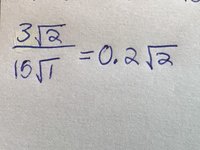 3√2
15√1 = 0.2√2